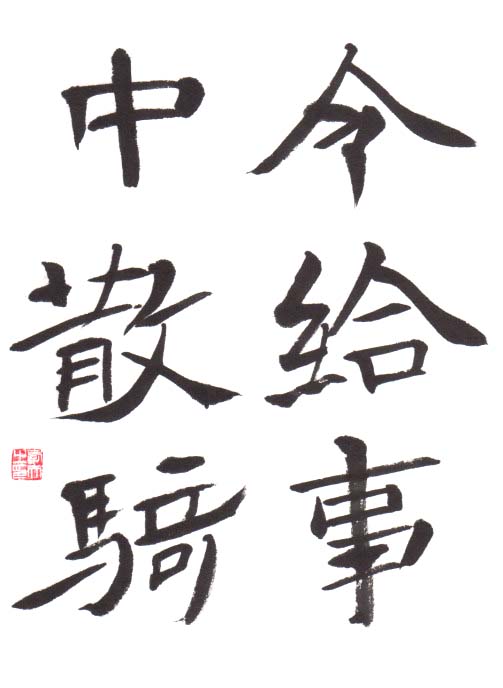 令給事
中散騎